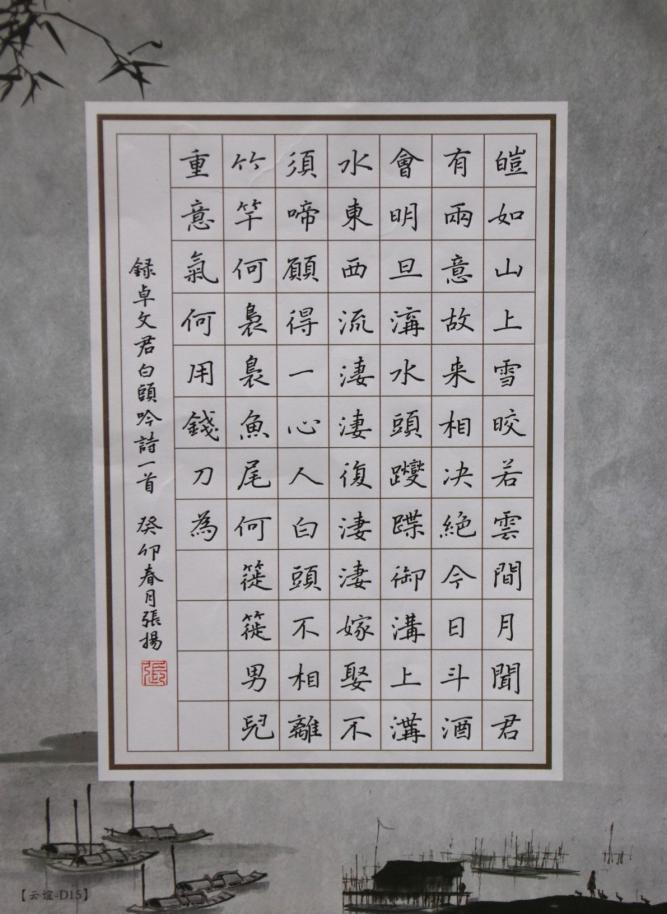 皚如山上雪晈若雲間月聞君
有兩意故来相决絶今日斗酒
會明旦溝水頭躞蹀御溝上溝
水東西流淒淒復淒淒嫁娶不
須啼願得一心人白頭不相離
竹竿何裊裊魚尾何簁簁男兒
重意氣何用錢刀為
録卓文君白頭吟詩一首 癸卯春月張揚
張
【云谊-D15】